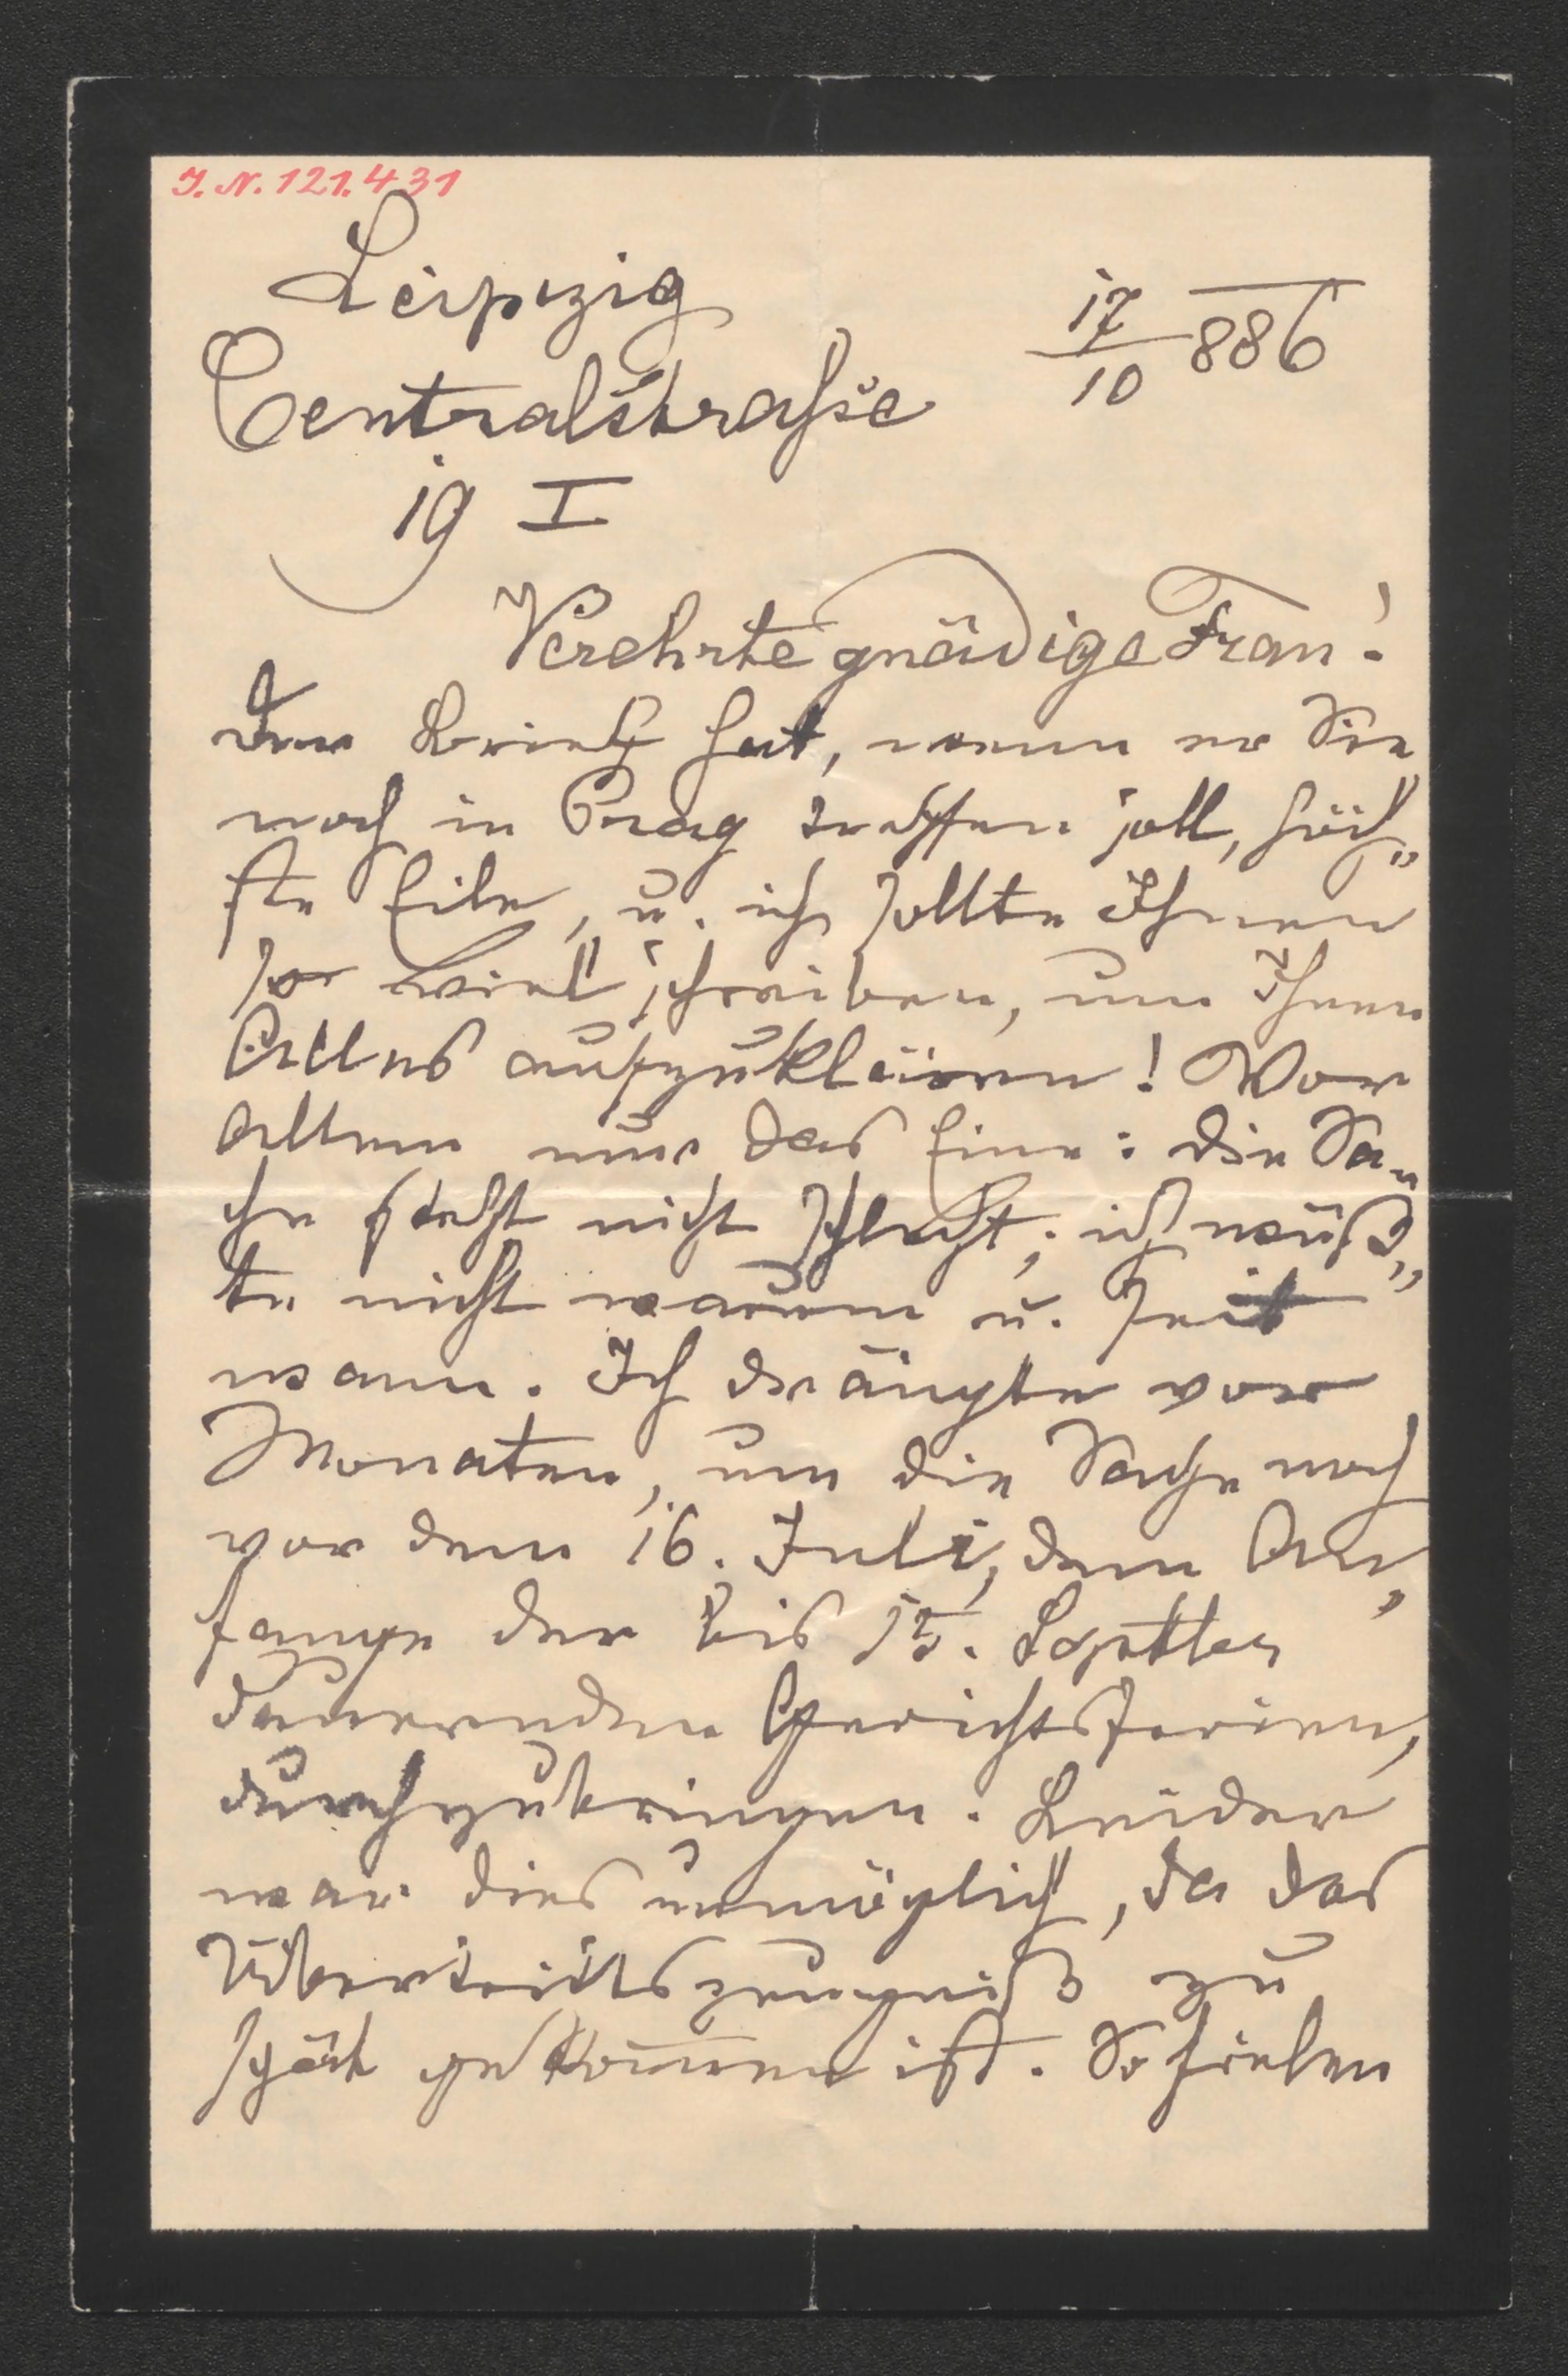 J. N. 121.431
Leipzig
17/10 886
Centralstraße
19 I
Verehrte gnädige Frau!
Der Brief hat, wenn er Sie
noch in Prag treffen soll, höch„
ste Eile, u. ich sollte Ihnen
so viel schreiben, um Ihnen
Alles aufzuklären! Vor
Allem nur das Eine: die Sa„
che steht nicht schlecht; ich wüß„
te nicht warum u. seit
wann. Ich drängte vor
Monaten, um die Sache noch
vor dem 16. Juli, dem An„
fange der bis 15. Septber
dauernden Gerichtsferien,
durchzubringen. Leider
war dies unmöglich, da das
Übertrittszeugniß zu
spät gekom̅en ist. So fielen